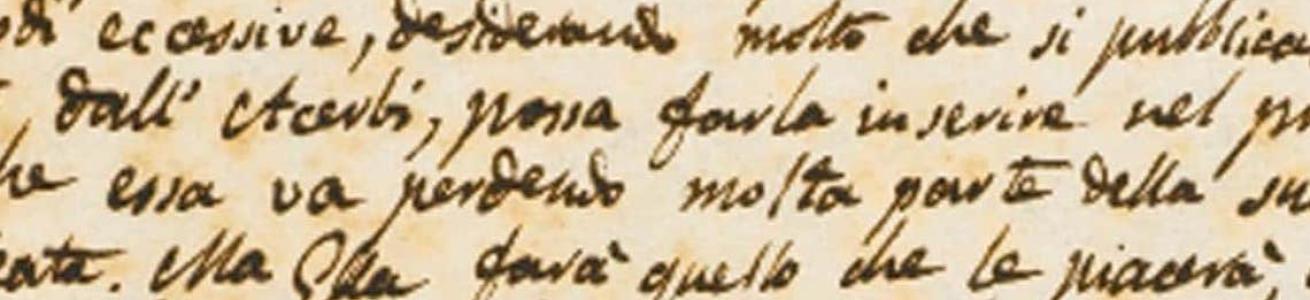 di eccessive, desiderando molto che si pubblica
, dall' Acerbi, possa farla inserire nel pr
he essa va perdendo molta parte della su
cata. Ma Ella farà quello che le piacerà,